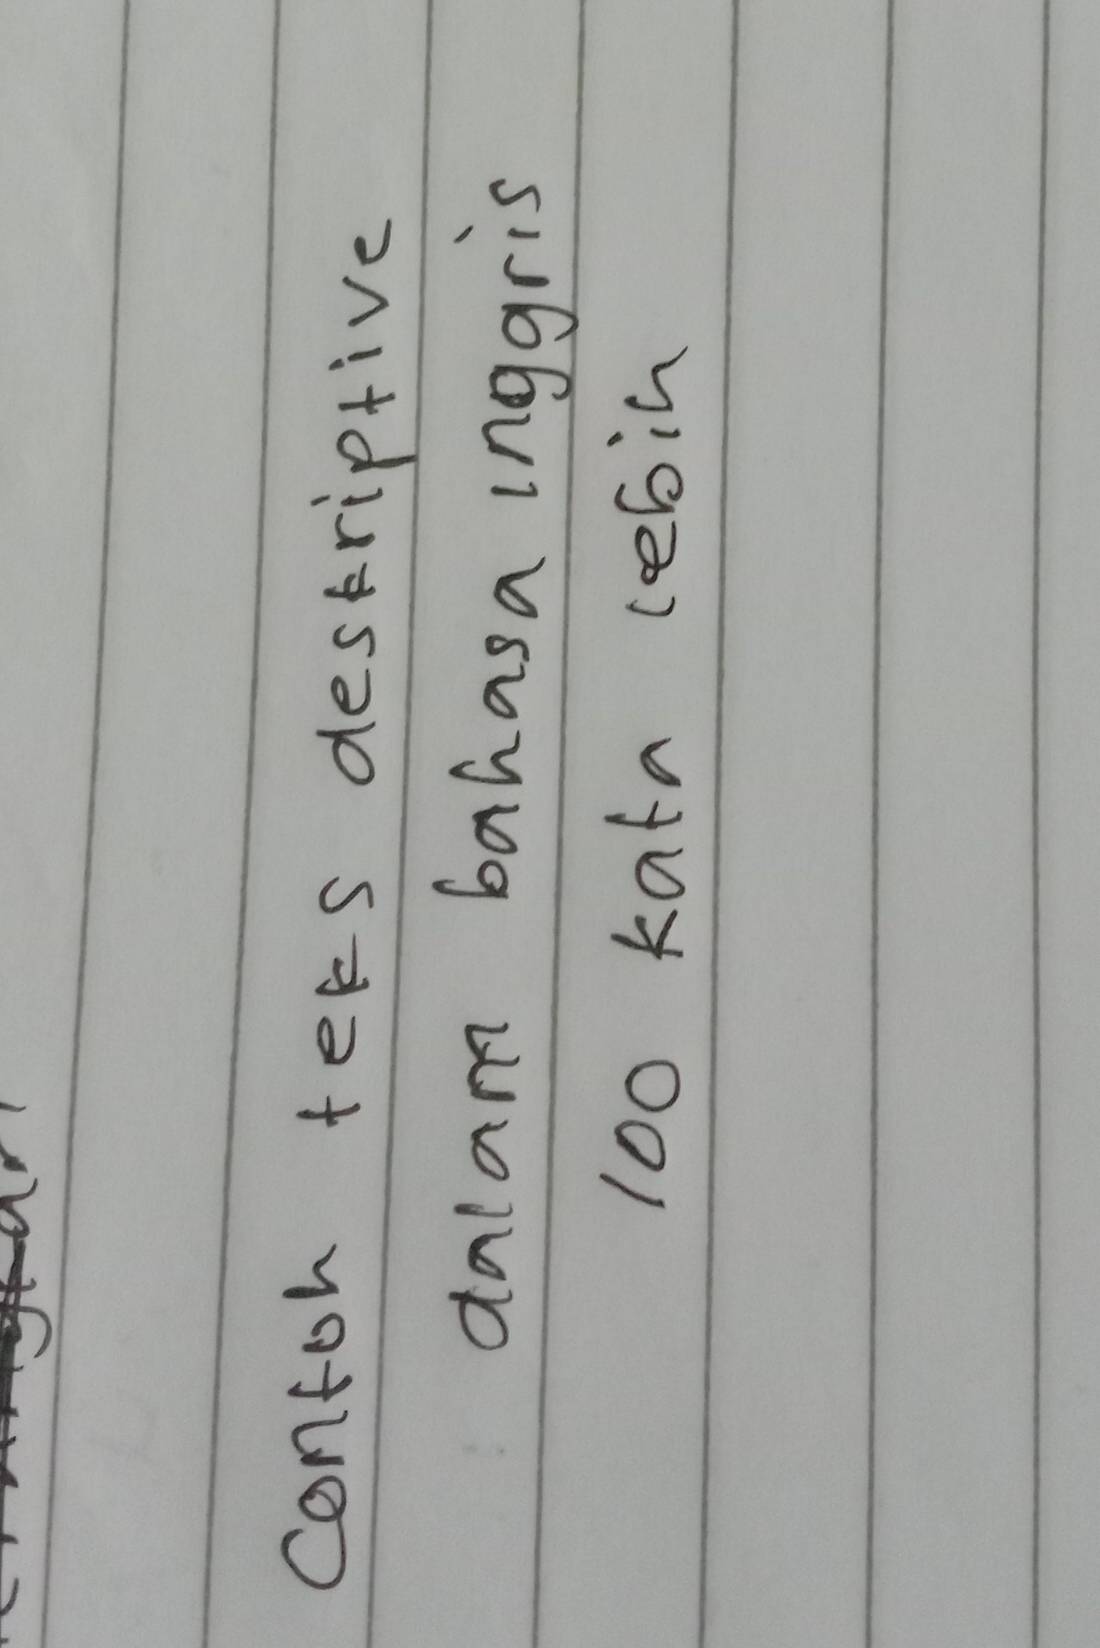 Contoh teks deskriptive
dalam bahasa inggris
100 kata lebih